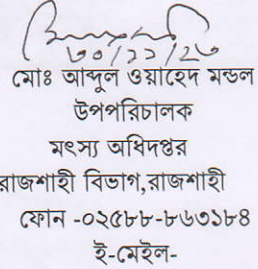 ৩০/১১/২৩
মোঃ আব্দুল ওয়াহেদ মন্ডল
উপপরিচালক
মৎস্য অধিদপ্তর
রাজশাহী বিভাগ,রাজশাহী
ফোন -০২৫৮৮-৮৬৩১৮৪
ই-মেইল-